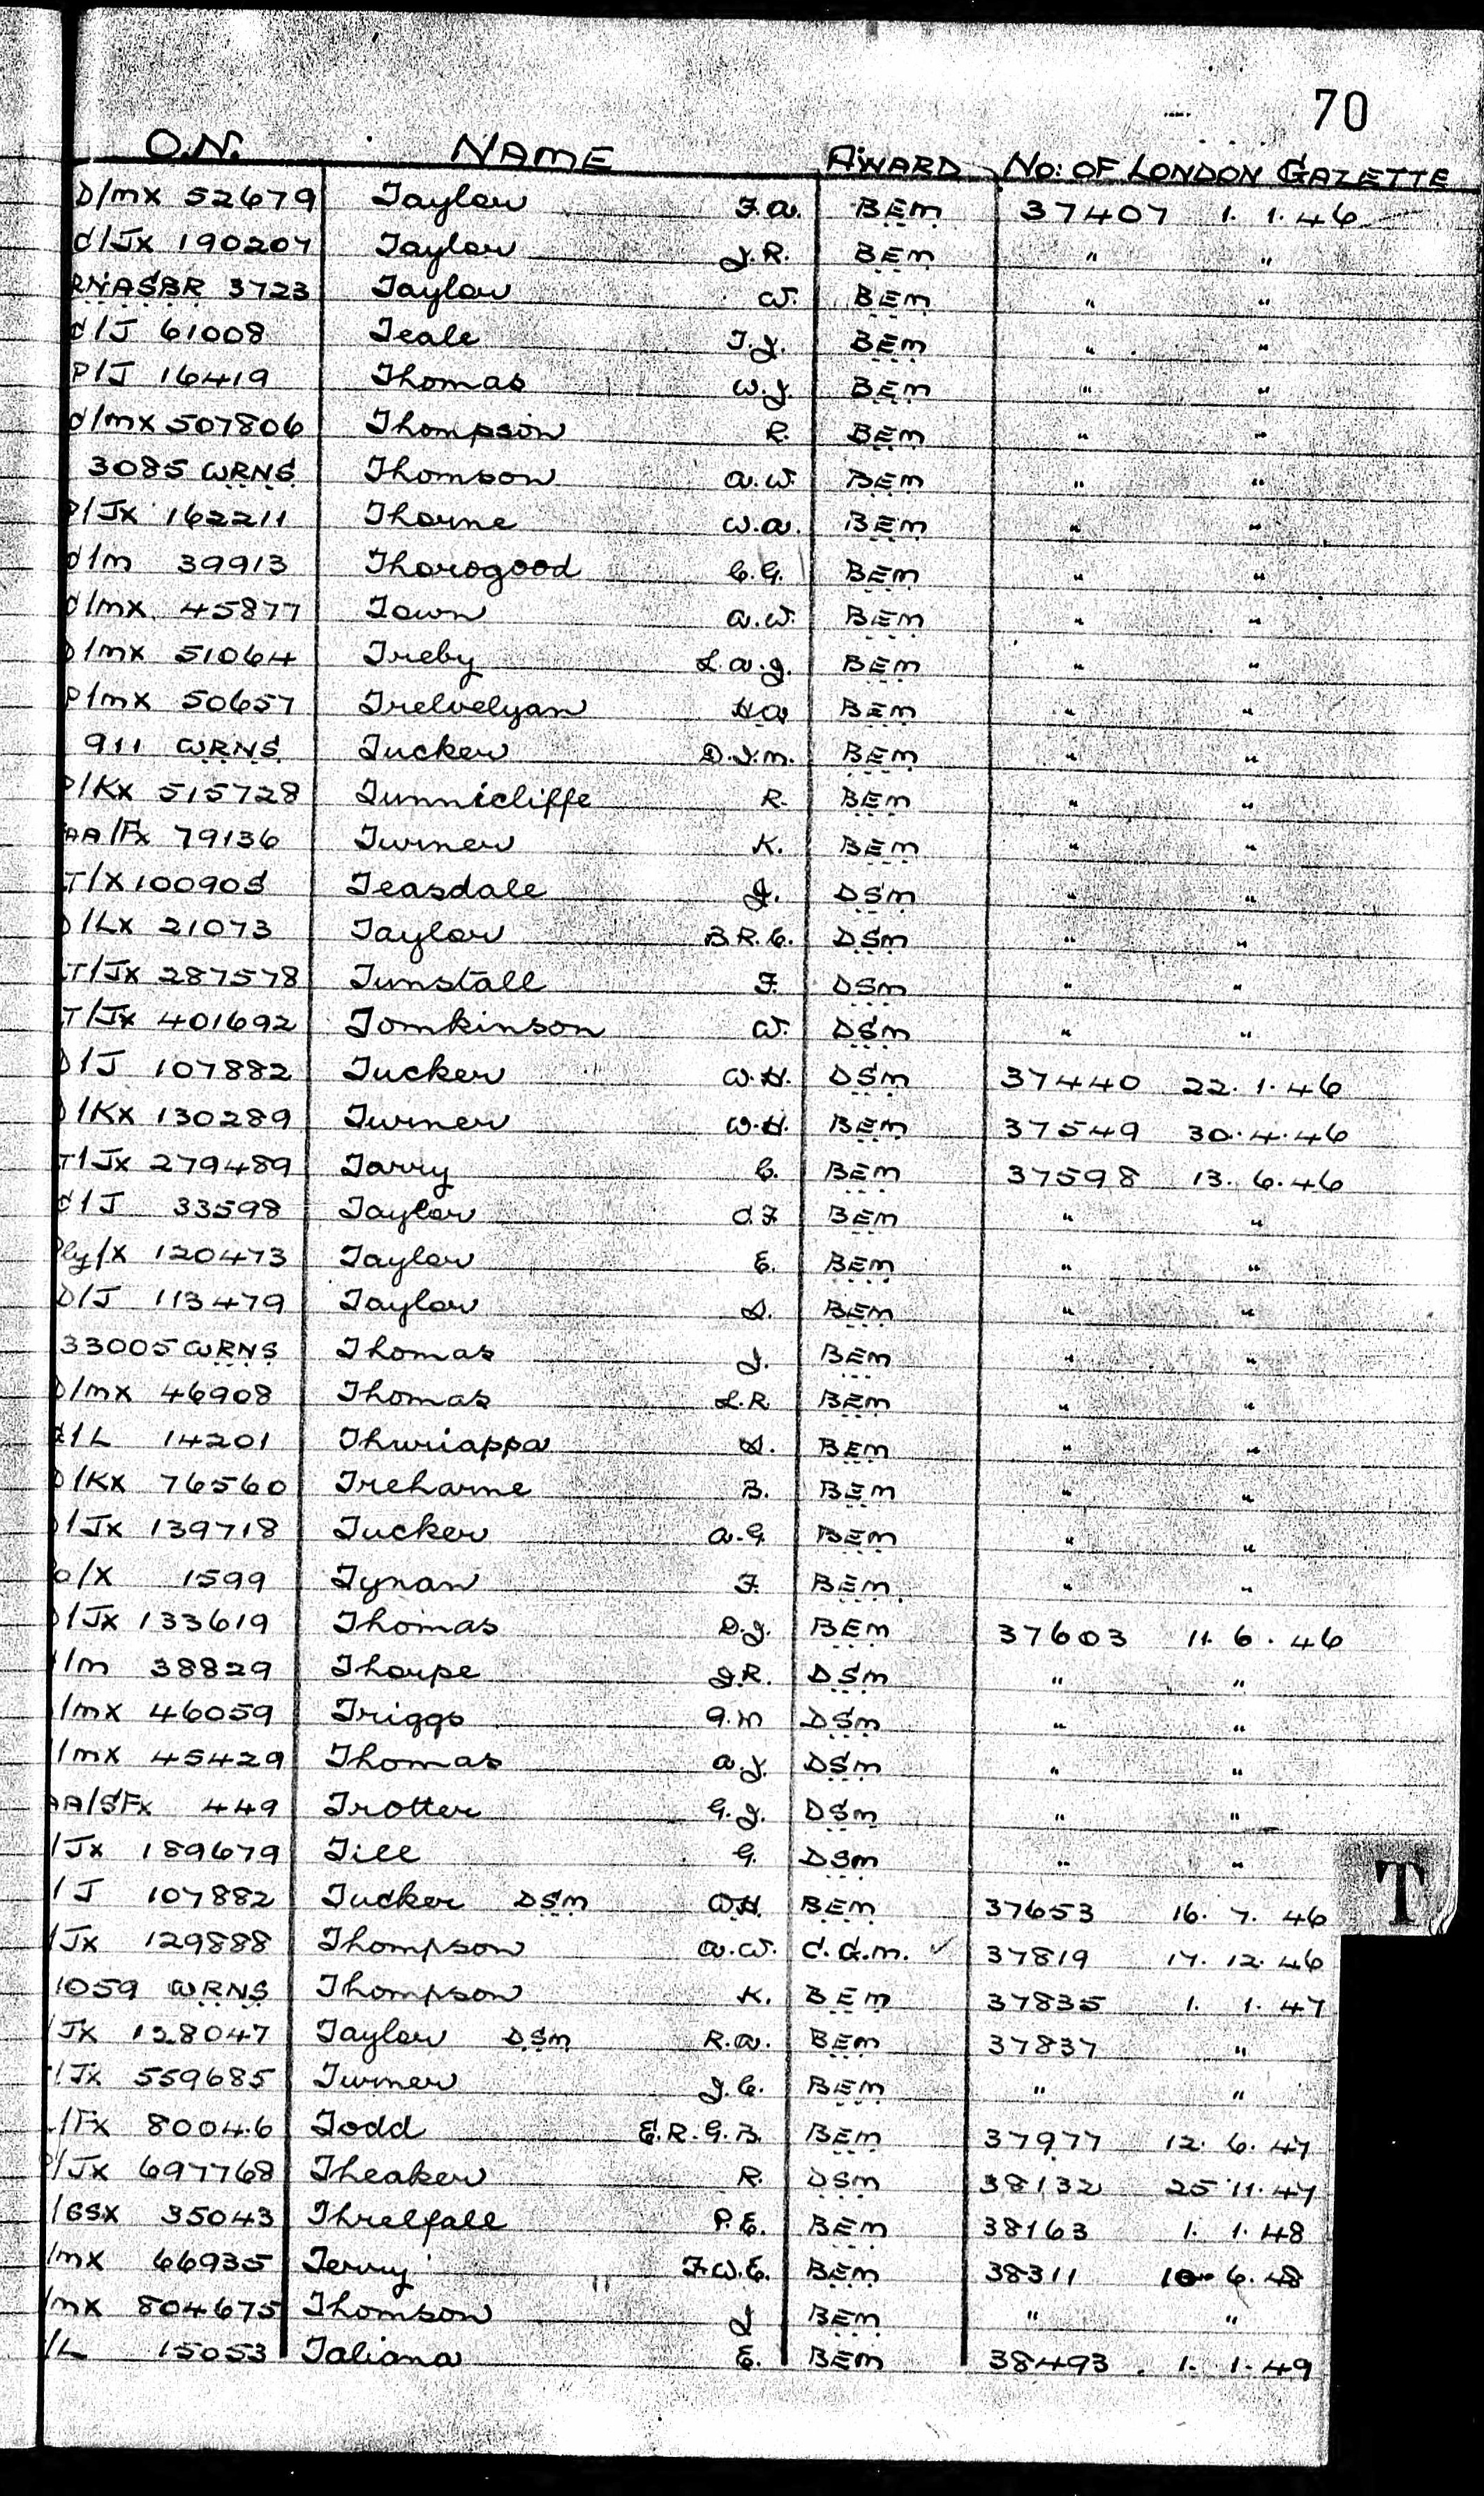 70
O.N. NAME AWARD No: OF LONDON GAZETTE
D/MX 52679 Taylor F.A. BEM 37407 1. 1. 46
C/JX 190207 Taylor J.R. BEM " "
RNASBR 3723 Taylor W. BEM " "
C/J 61008 Teale T.J. BEM " "
P/J 16419 Thomas W.J. BEM " "
C/MX 507806 Thompson R. BEM " "
3085 WRNS Thomson A.W. BEM " "
P/JX 162211 Thorne W.A. BEM " "
C/M 39913 Thorogood C.G. BEM " "
C/MX 45877 Town A.W. BEM " "
D/MX 51064 Treby L.A.J. BEM " "
P/MX 50657 Trelvelyan H.A. BEM " "
911 WRNS Tucker D.J.M. BEM " "
P/KX 515728 Tunnicliffe R. BEM " "
AA/FX 79136 Turner K. BEM " "
T/X 10090S Teasdale J. DSM " "
D/LX 21073 Taylor B.R.C. DSM " "
T/JX 287578 Tunstall F. DSM " "
T/JX 401692 Tomkinson W. DSM " "
D/J 107882 Tucker W.H. DSM 37440 22. 1. 46
D/KX 130289 Turner W.H. BEM 37549 30. 4. 46
T/JX 279489 Tarry C. BEM 37598 13. 6. 46
C/J 33598 Taylor C.F BEM " "
Ply/X 120473 Taylor E. BEM " "
D/J 113479 Taylor S. BEM " "
33005 WRNS Thomas J. BEM " "
D/MX 46908 Thomas L.R BEM " "
/L 14201 Thuriappa S. BEM " "
D/KX 76560 Treharne B. BEM " "
/JX 139718 Tucker A.G BEM " "
o/X 1599 Tynan F. BEM " "
/JX 133619 Thomas D.J. BEM 37603 11. 6. 46
/M 38829 Thorpe J.R. DSM " "
/MX 46059 Triggs G.M DSM " "
/MX 45429 Thomas A.J. DSM " "
AA/SFX 449 Trotter G.J. DSM " "
/JX 189679 Till G. DSM " "
T
/J 107882 Tucker DSM W.H. BEM 37653 16. 7. 46
/JX 129888 Thompson A.W. C.G.M. ✓ 37819 17. 12. 46
1059 WRNS Thompson K. BEM 37835 1. 1. 47
/JX 128047 Taylor DSM R.A. BEM 37837 "
/JX 559685 Turner J.C. BEM " "
/FX 80046 Todd E.R.G.B. BEM 37977 12. 6. 47
/JX 697768 Theaker R. DSM 38132 25 11. 47
/SSX 35043 Threlfall P.E. BEM 38163 1. 1. 48
/MX 66935 Terry F.W.E. BEM 38311 10 6. 48
/MX 804675 Thomson J BEM " "
/L 15053 Taliana E. BEM 38493 1. 1. 49